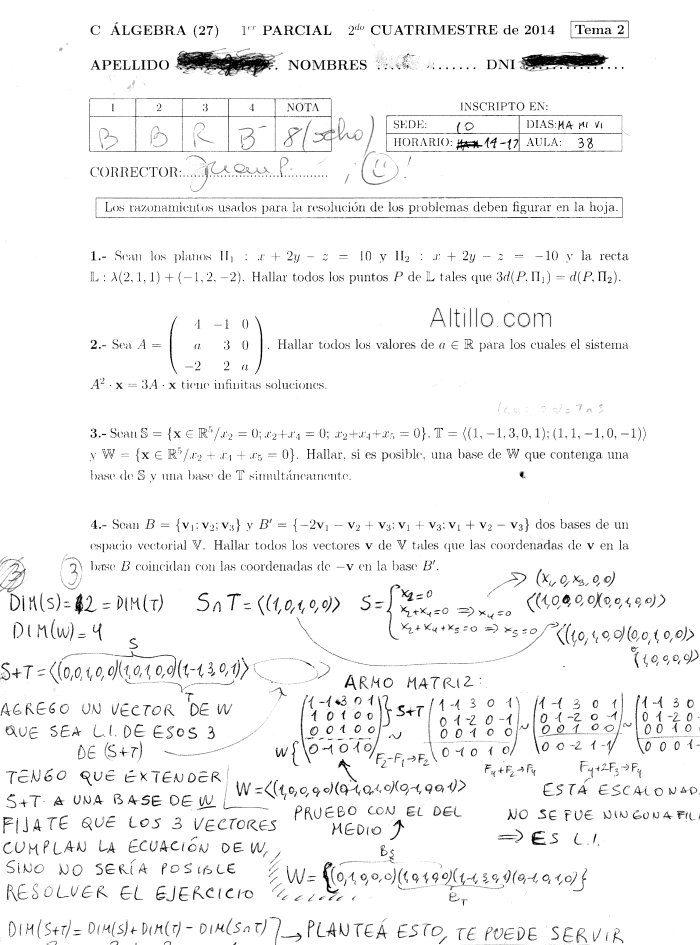 C ÁLGEBRA (27) 1er PARCIAL 2do CUATRIMESTRE de 2014 Tema 2
APELLIDO NOMBRES DNI
1 2 3 4 NOTA
B B R B⁻ 8 (ocho)
INSCRIPTO EN:
SEDE: 10 DIAS: MA MI VI
HORARIO: 14-17 AULA: 38
CORRECTOR: Juan P.
Los razonamientos usados para la resolución de los problemas deben figurar en la hoja.
1.- Sean los planos Π₁ : x + 2y − z = 10 y Π₂ : x + 2y − z = −10 y la recta
𝕃 : λ(2, 1, 1) + (−1, 2, −2). Hallar todos los puntos P de 𝕃 tales que 3d(P, Π₁) = d(P, Π₂).
Altillo.com
2.- Sea A = ( 4 −1 0 ; a 3 0 ; −2 2 a ). Hallar todos los valores de a ∈ ℝ para los cuales el sistema
A² · x = 3A · x tiene infinitas soluciones.
3.- Sean 𝕊 = {x ∈ ℝ⁵/x₂ = 0; x₂+x₄ = 0; x₂+x₄+x₅ = 0}, 𝕋 = ⟨(1, −1, 3, 0, 1); (1, 1, −1, 0, −1)⟩
y 𝕎 = {x ∈ ℝ⁵/x₂ + x₄ + x₅ = 0}. Hallar, si es posible, una base de 𝕎 que contenga una
base de 𝕊 y una base de 𝕋 simultáneamente.
4.- Sean B = {v₁; v₂; v₃} y B′ = {−2v₁ − v₂ + v₃; v₁ + v₃; v₁ + v₂ − v₃} dos bases de un
espacio vectorial 𝕍. Hallar todos los vectores v de 𝕍 tales que las coordenadas de v en la
base B coincidan con las coordenadas de −v en la base B′.
3
DIM(S)=2=DIM(T) S∩T=⟨(1,0,1,0,0)⟩ S= { x₂=0
x₂+x₄=0 ⇒ x₄=0
x₂+x₄+x₅=0 ⇒ x₅=0
(x₁,0,x₃,0,0)
⟨(1,0,0,0,0)(0,0,1,0,0)⟩
⟨(1,0,1,0,0)(0,0,1,0,0)⟩
ó (1,0,0,0,0)
DIM(W)=4
S
S+T=⟨(0,0,1,0,0)(1,0,1,0,0)(1,-1,3,0,1)⟩
T
AGREGO UN VECTOR DE W
QUE SEA L.I. DE ESOS 3
DE (S+T)
ARMO MATRIZ:
1 -1 3 0 1
1 0 1 0 0
0 0 1 0 0
S+T
W { 0 -1 0 1 0
F₂-F₁→F₂
1 -1 3 0 1
0 1 -2 0 -1
0 0 1 0 0
0 -1 0 1 0
F₄+F₂→F₄
1 -1 3 0 1
0 1 -2 0 -1
0 0 1 0 0
0 0 -2 1 -1
F₄+2F₃→F₄
1 -1 3 0
0 1 -2 0
0 0 1 0
0 0 0 1
TENGO QUE EXTENDER
S+T A UNA BASE DE W
FIJATE QUE LOS 3 VECTORES
CUMPLAN LA ECUACIÓN DE W,
SINO NO SERÍA POSIBLE
RESOLVER EL EJERCICIO
W=⟨(1,0,0,0,0)(0,-1,0,1,0)(0,-1,0,0,1)⟩
PRUEBO CON EL DEL
MEDIO
ESTÁ ESCALONADA
NO SE FUE NINGUNA FIL
⇒ ES L.I.
B_S
W={(0,1,0,0,0)(1,0,1,0,0)(1,-1,3,0,1)(0,-1,0,1,0)}
B_T
DIM(S+T)=DIM(S)+DIM(T)-DIM(S∩T) → PLANTEÁ ESTO, TE PUEDE SERVIR